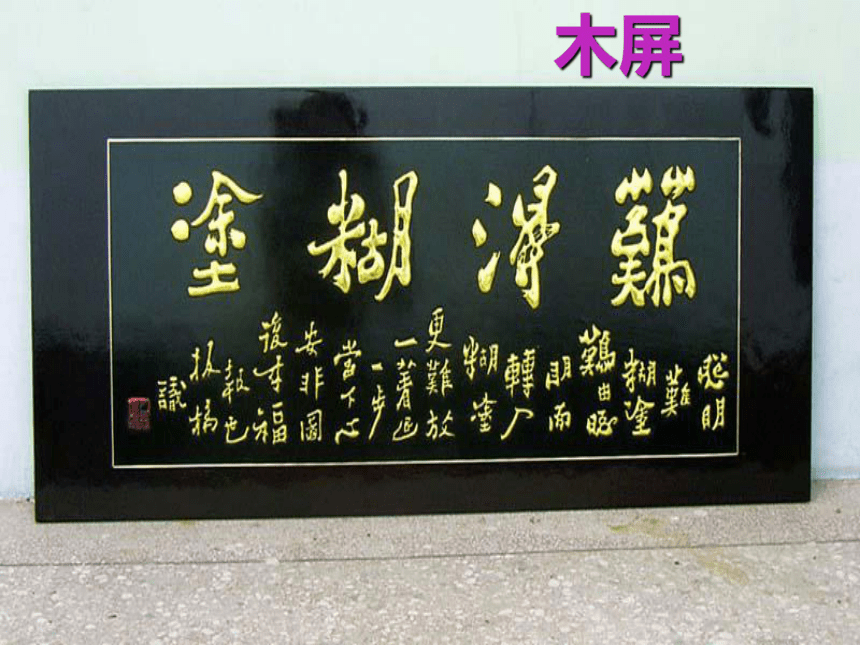 木屏
難得糊塗
聰明
難
糊塗
難由聰
明而
轉入
糊塗
更難放
一著退
一步
當下心
安非圖
後來福
報也
板橋
識